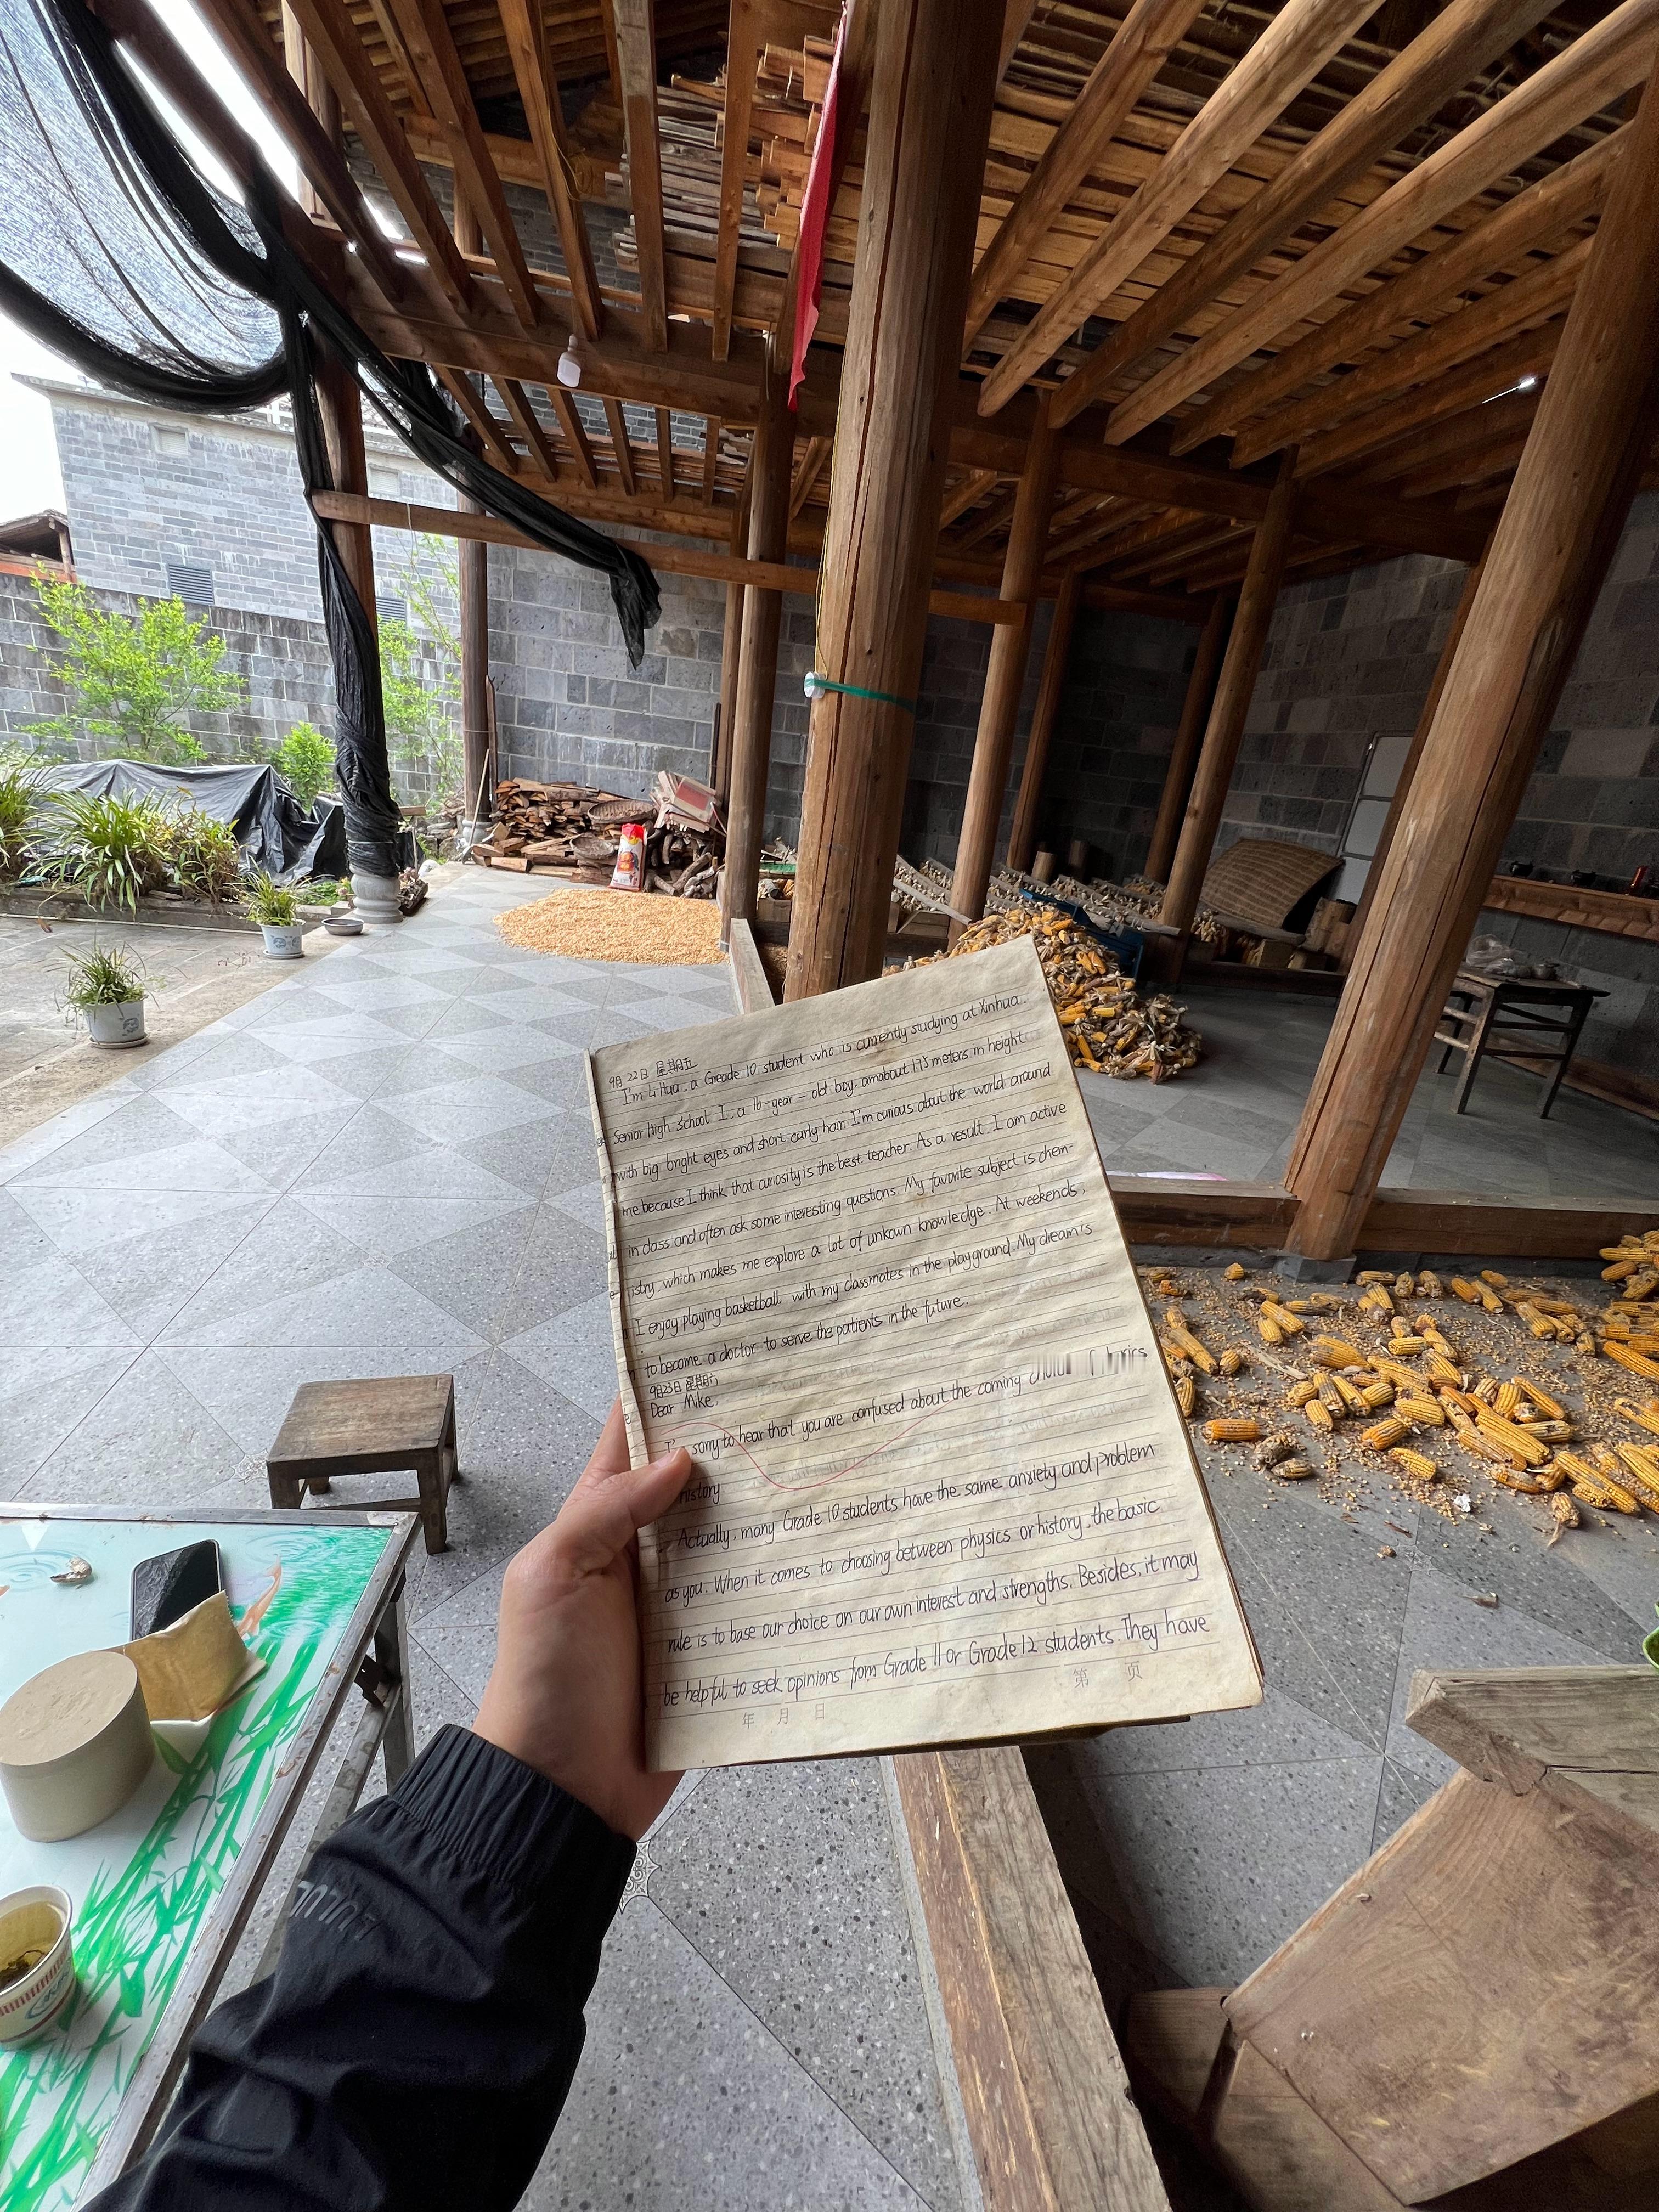 9月22日 星期五
I'm Li Hua, a Greade 10 student who is currently studying at Xinhua
Senior High School I, a 16-year-old boy, amabout 1.75 meters in height
with big bright eyes and short curly hair. I'm curious about the world around
me because I think that curiosity is the best teacher. As a result, I am active
in class and often ask some interesting questions. My favorite subject is chem-
istry, which makes me explore a lot of unkown knowledge. At weekends,
I enjoy playing basketball with my classmates in the playground. My dream is
to become a doctor to serve the patients in the future.
9月23日 星期六
Dear Mike,
sorry to hear that you are confused about the coming
history
Actually, many Grade 10 students have the same anxiety and problem
as you. When it comes to choosing between physics or history, the basic
rule is to base our choice on our own interest and strengths. Besides, it may
be helpful to seek opinions from Grade 11 or Grade 12 students. They have
第 页
年 月 日